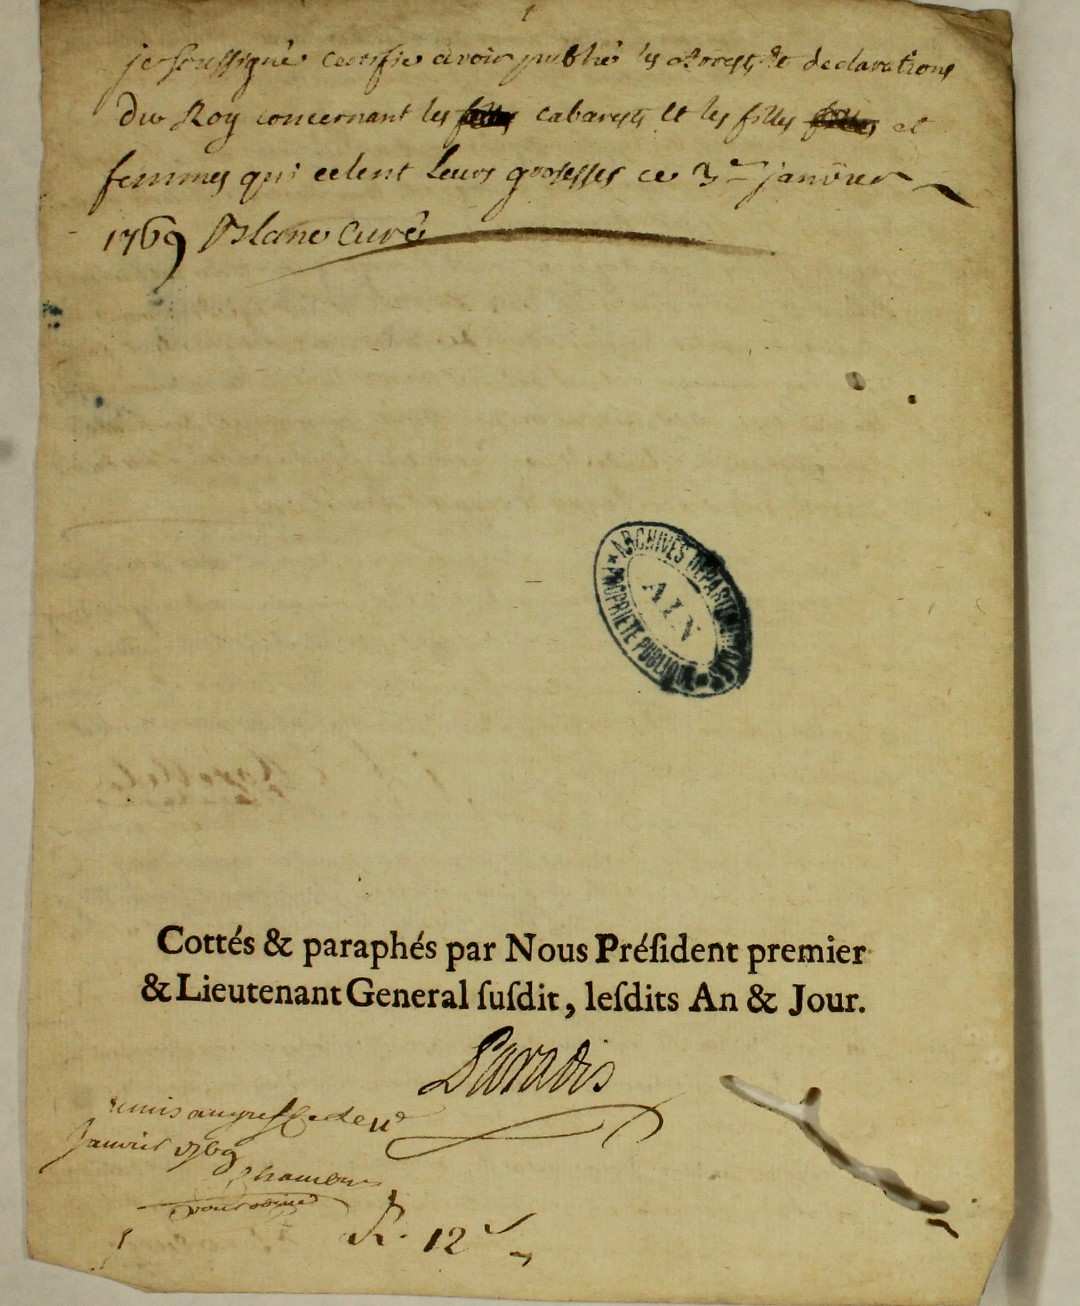 je soussigné certifie avoir publié les Edrests et declarations
du Roy concernant les cabarests et les filles et
femmes qui celent leurs grosesses ce 3me janvier
1769 Blanc Curé
ARCHIVES DÉPARTEMENTALES
AIN
PROPRIÉTÉ PUBLIQUE
Cottés & paraphés par Nous Préſident premier
& Lieutenant General ſuſdit, leſdits An & Jour.
Paradis
remis au greffe le
Janvier 1769
R. 12